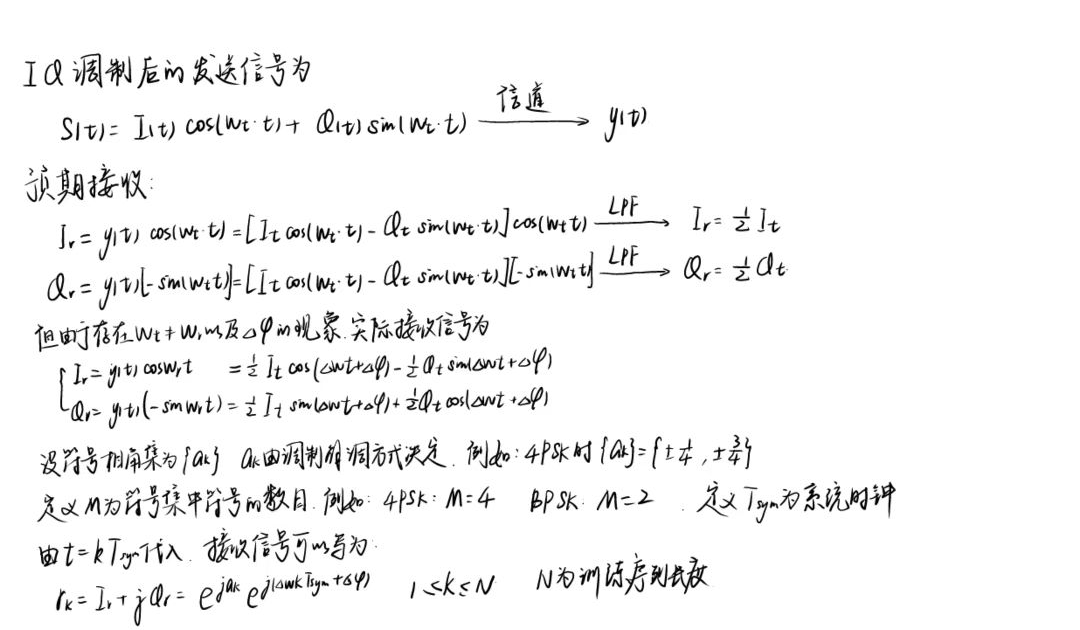 IQ调制后的发送信号为
S(t)= I(t) cos(Wt·t)+ Q(t) sin(Wt·t) 信道→ y(t)
预期接收:
Ir= y(t) cos(Wt·t)=[It cos(Wt·t)- Qt sin(Wt·t)]cos(Wt t) LPF→ Ir= 1/2 It
Qr= y(t)[-sin(Wt t)]=[It cos(Wt·t)- Qt sin(Wt·t)][-sin(Wt t)] LPF→ Qr= 1/2 Qt
但由于存在Wt≠Wr以及△φ的现象.实际接收信号为
{ Ir= y(t) cosWrt = 1/2 It cos(△wt+△φ)- 1/2 Qt sin(△wt+△φ)
Qr= y(t)(-sinWrt)= 1/2 It sin(△wt+△φ)+ 1/2 Qt cos(△wt+△φ)
设符号相角集为{ak} ak由调制解调方式决定. 例如: 4PSK时{ak}={±1/4, ±3/4}
定义M为符号集中符号的数目. 例如: 4PSK: M=4 BPSK: M=2 . 定义Tsym为系统时钟
由t=kTsym代入. 接收信号可以写为:
rk= Ir+jQr= e^{jak} e^{j(△wkTsym+△φ)} 1≤k≤N N为训练序列长度